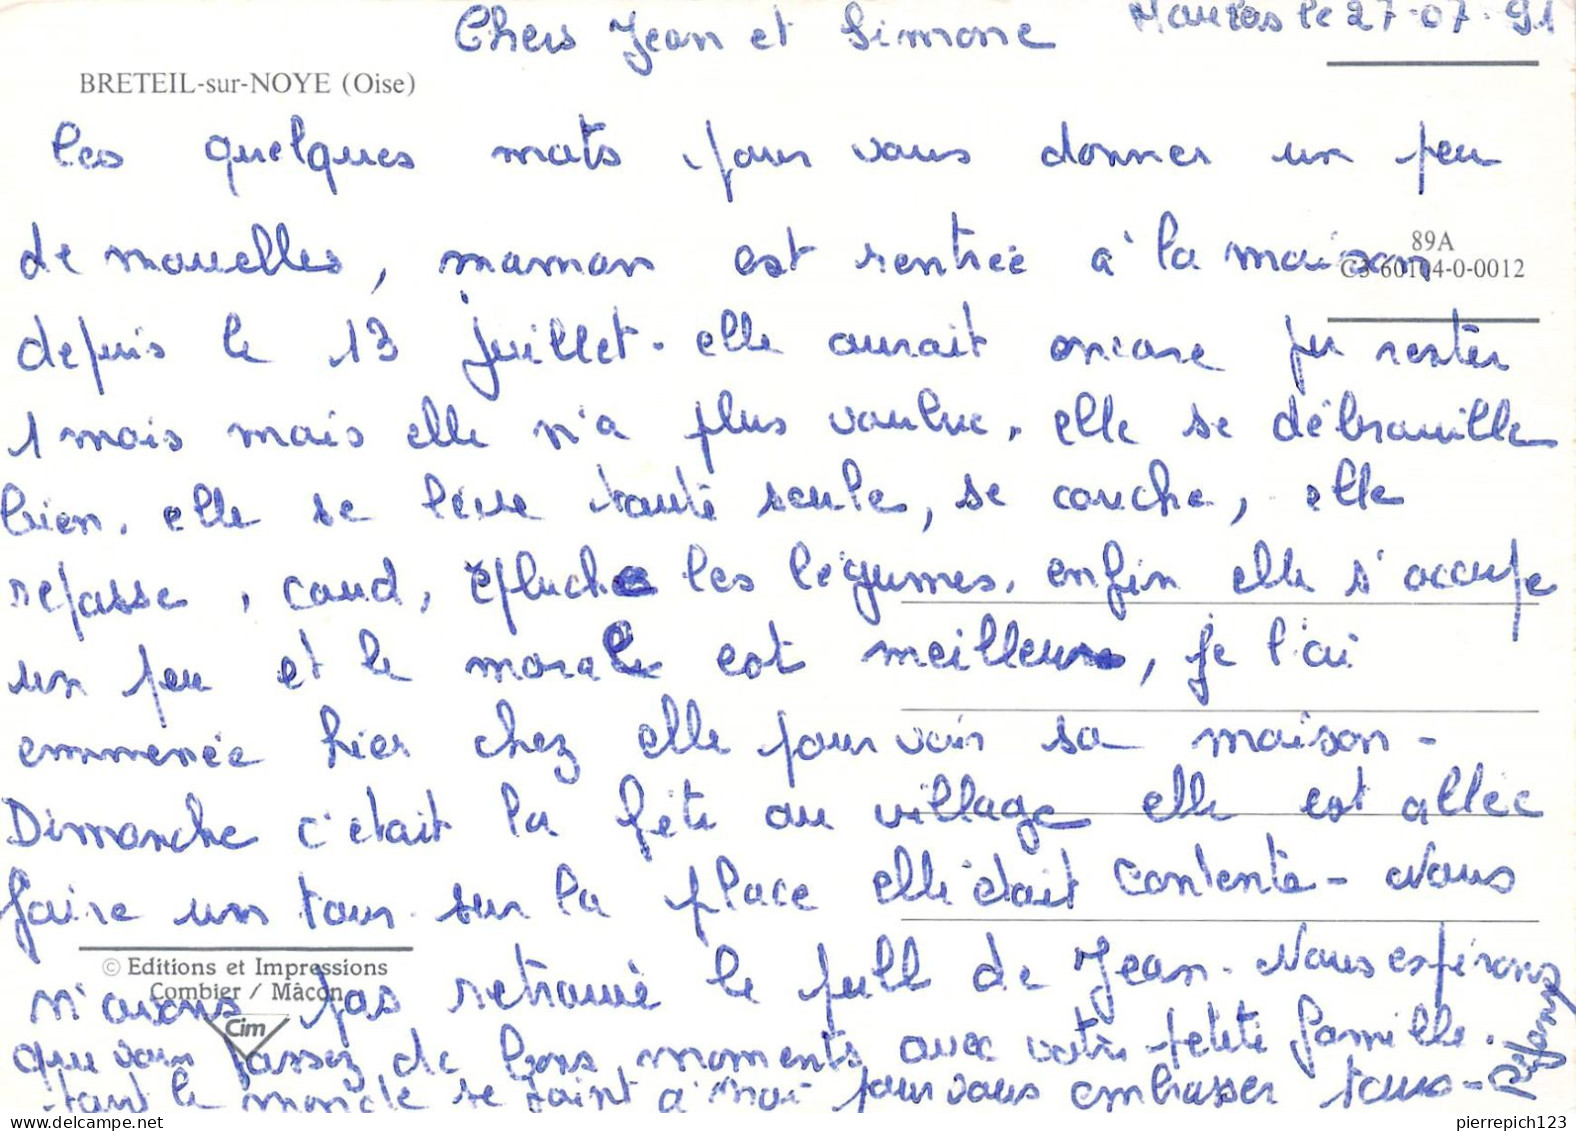 Chers Jean et Simone le 27-07-91
BRETEIL-sur-NOYE (Oise)
ces quelques mots pour vous donner un peu
de nouvelles, maman est rentrée à la maison
89A
C3 60104-0-0012
depuis le 13 juillet. elle aurait encore pu rester
1 mois mais elle n'a plus voulue, elle se débrouille
bien. elle se lève toute seule, se couche, elle
repasse, coud, épluche les légumes, enfin elle s'occupe
un peu et le morale est meilleur, je l'ai
emmenée hier chez elle pour voir sa maison -
Dimanche c'était la fête au village elle est allée
faire un tour sur la place elle était contente - Nous
© Editions et Impressions
Combier / Mâcon
n'avons pas retrouvé le pull de Jean. Nous espérons
Cim
que vous passez de bons moments avec votre petite famille.
tout le monde se joint à moi pour vous embrasser tous -
pierrepich123